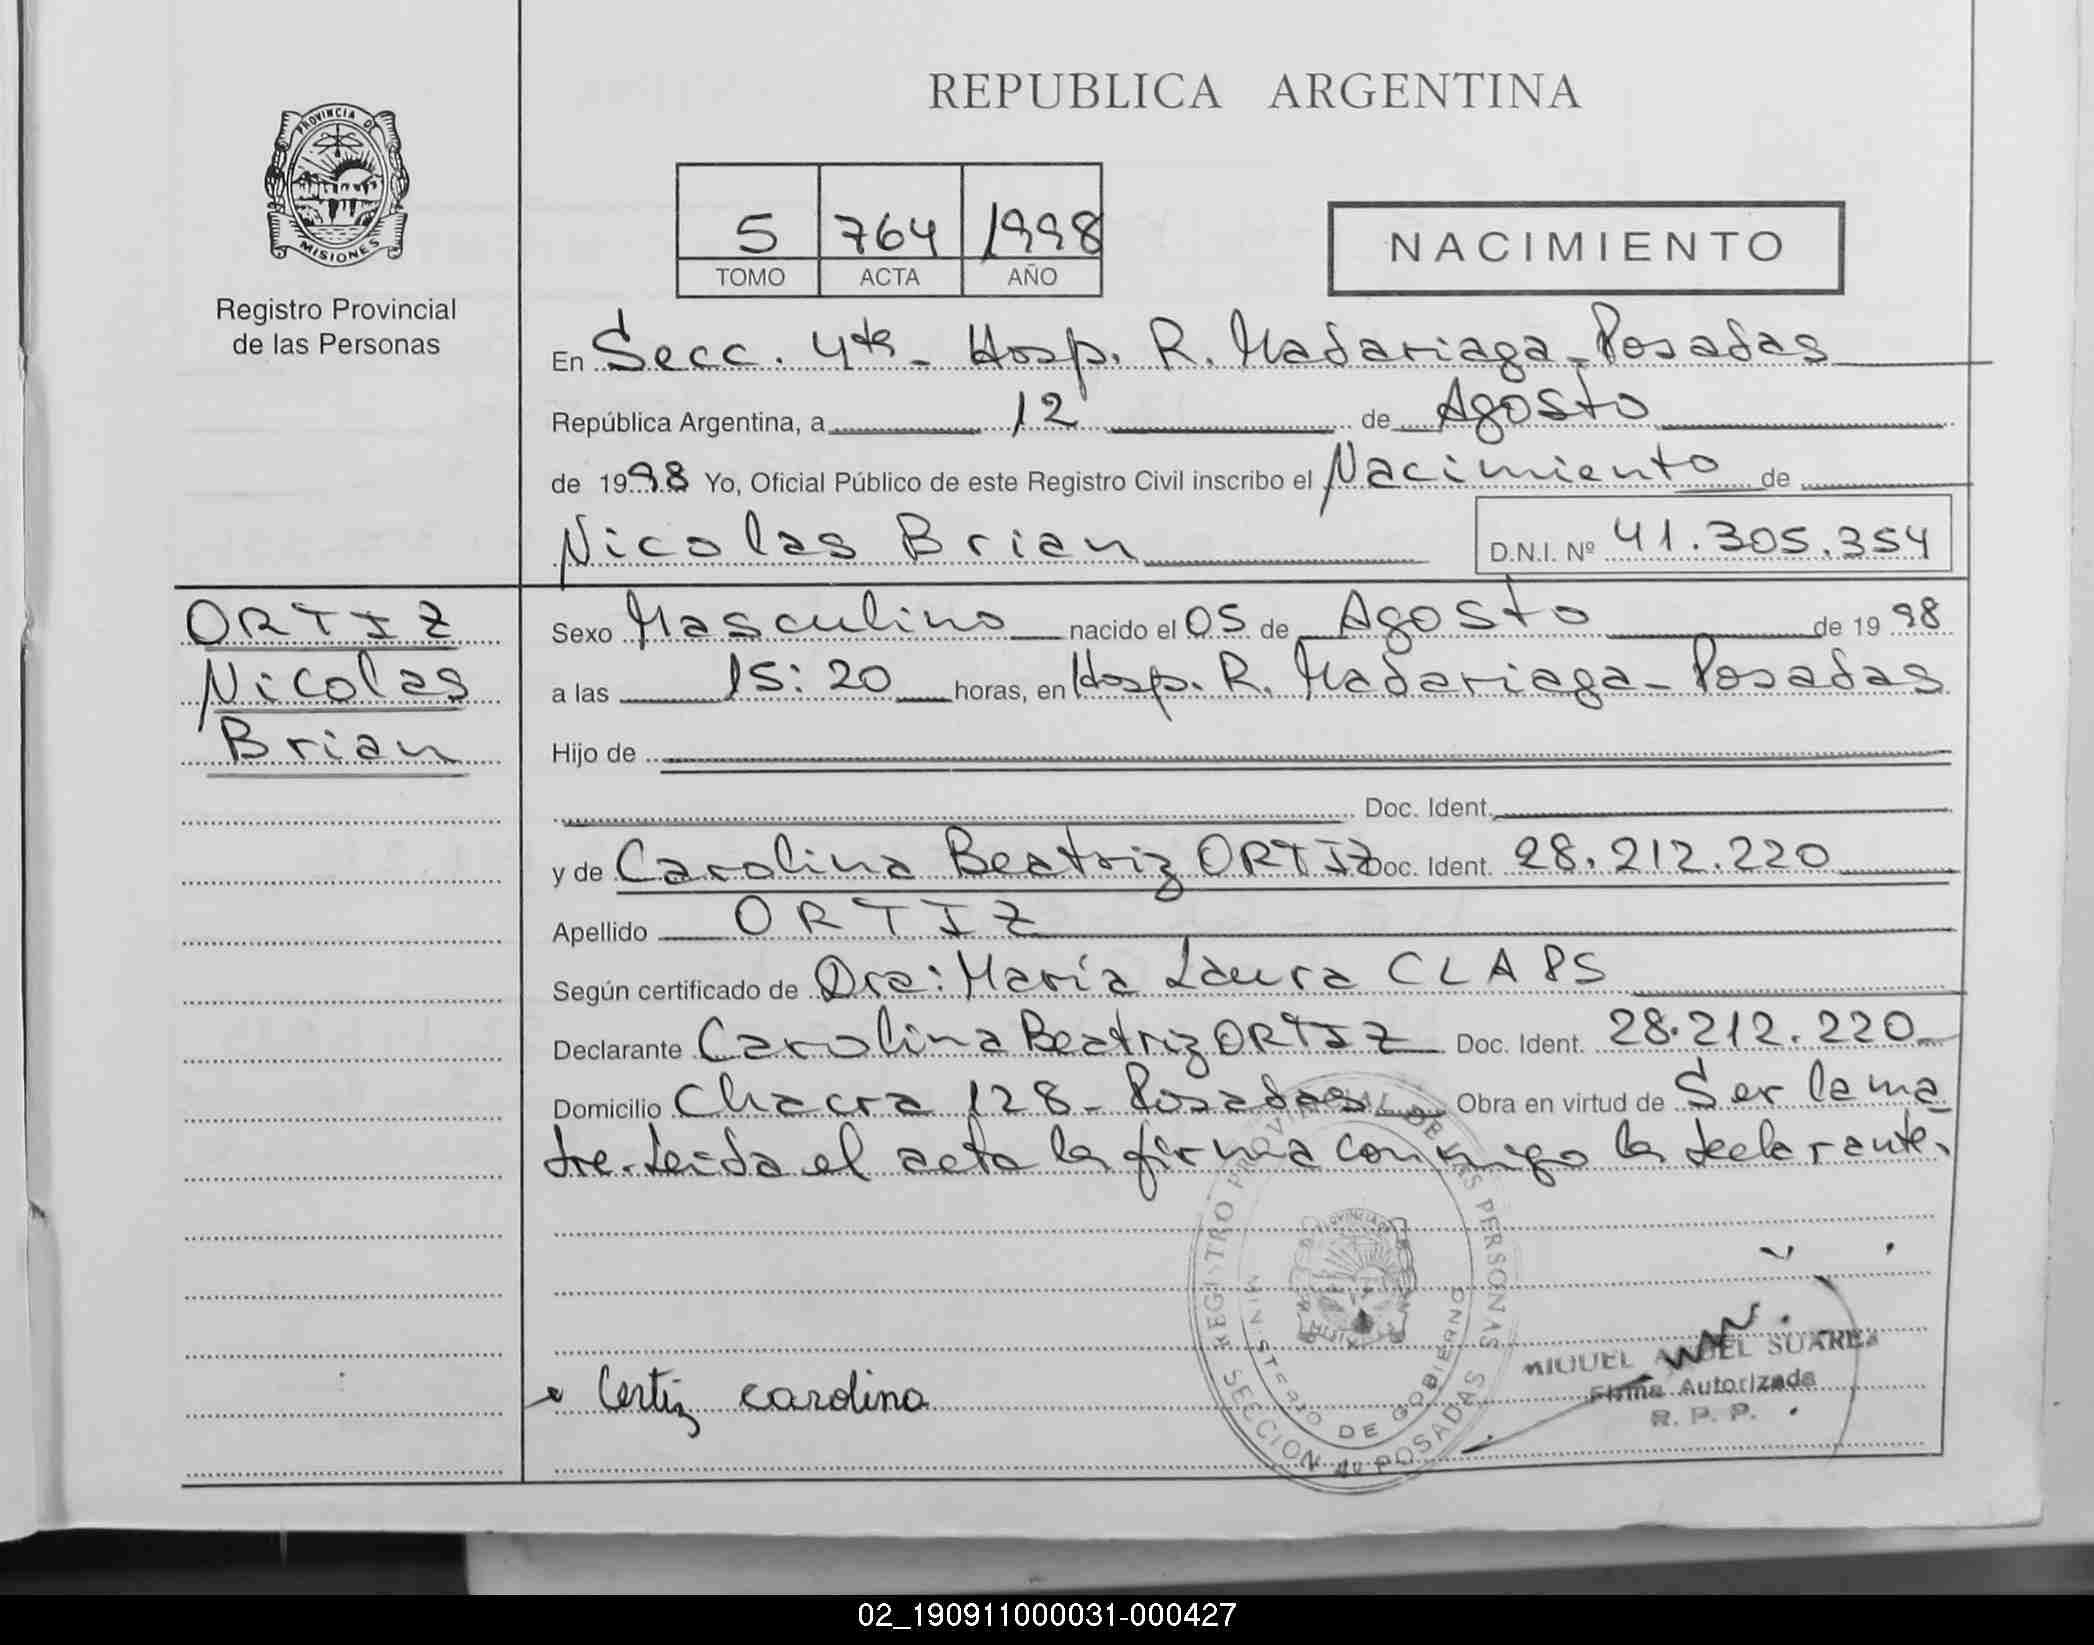 REPUBLICA ARGENTINA
PROVINCIA DE MISIONES
Registro Provincial
de las Personas
5 764 1998
TOMO ACTA AÑO
NACIMIENTO
En Secc. 4ta - Hosp. R. Madariaga - Posadas
República Argentina, a 12 de Agosto
de 1998 Yo, Oficial Público de este Registro Civil inscribo el Nacimiento de
Nicolas Brian D.N.I. Nº 41.305.354
ORTIZ
Nicolas
Brian
Sexo Masculino nacido el 05 de Agosto de 1998
a las 15:20 horas, en Hosp. R. Madariaga - Posadas
Hijo de
Doc. Ident.
y de Carolina Beatriz ORTIZ Doc. Ident. 28.212.220
Apellido ORTIZ
Según certificado de Dra: María Laura CLAPS
Declarante Carolina Beatriz ORTIZ Doc. Ident. 28.212.220
Domicilio Chacra 128 - Posadas Obra en virtud de Ser la ma
dre. Leida el acta la firma conmigo la declarante.
REGISTRO PROVINCIAL DE LAS PERSONAS
MINISTERIO DE GOBIERNO
SECCION 4ta POSADAS
MIGUEL ANGEL SUAREZ
Firma Autorizada
R. P. P.
Ortiz carolina
02_190911000031-000427